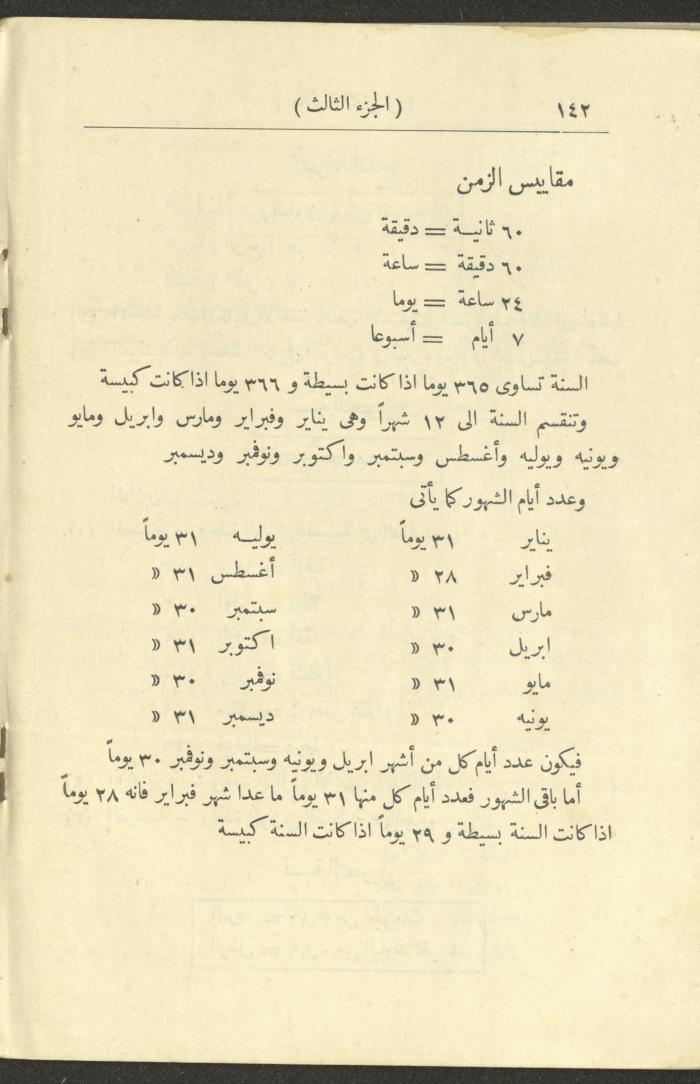 ١٤٢ ( الجزء الثالث )
مقاييس الزمن
٦٠ ثانيـة = دقيقة
٦٠ دقيقة = ساعة
٢٤ ساعة = يوما
٧ أيام = أسبوعا
السنة تساوى ٣٦٥ يوما اذا كانت بسيطة و ٣٦٦ يوما اذا كانت كبيسة
وتنقسم السنة الى ١٢ شهراً وهى يناير وفبراير ومارس وابريل ومايو
ويونيه ويوليه وأغسطس وسبتمبر واكتوبر ونوفمبر وديسمبر
وعدد أيام الشهور كما يأتى
يناير ٣١ يوماً يوليـه ٣١ يوماً
فبراير ٢٨ » أغسطس ٣١ »
مارس ٣١ » سبتمبر ٣٠ »
ابريل ٣٠ » اكتوبر ٣١ »
مايو ٣١ » نوفمبر ٣٠ »
يونيه ٣٠ » ديسمبر ٣١ »
فيكون عدد أيام كل من أشهر ابريل ويونيه وسبتمبر ونوفمبر ٣٠ يوماً
أما باقى الشهور فعدد أيام كل منها ٣١ يوماً ما عدا شهر فبراير فانه ٢٨ يوماً
اذا كانت السنة بسيطة و ٢٩ يوماً اذا كانت السنة كبيسة